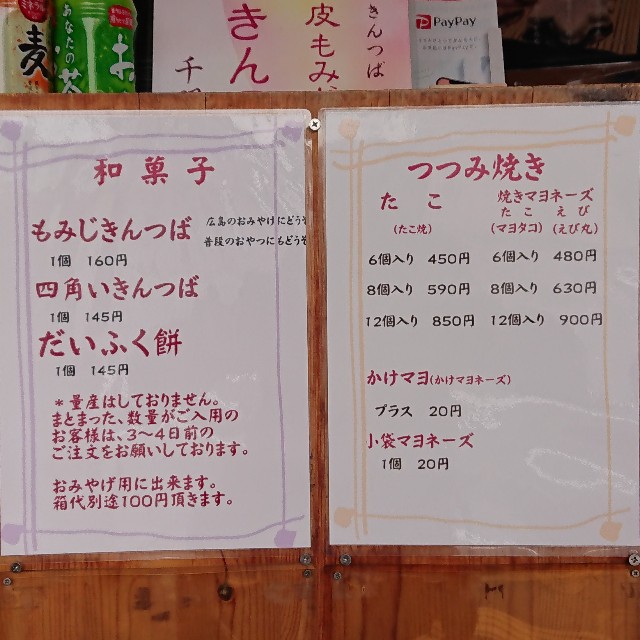 ミネラル
麦
あなたの
お
茶
きんつば
皮もみ
きん
千
PayPay
和菓子
もみじきんつば
広島のおみやげにどうぞ
普段のおやつにもどうぞ
1個 160円
四角いきんつば
1個 145円
だいふく餅
1個 145円
＊量産はしておりません。
まとまった、数量がご入用の
お客様は、3〜4日前の
ご注文をお願いしております。
おみやげ用に出来ます。
箱代別途100円頂きます。
つつみ焼き
たこ
(たこ焼)
焼きマヨネーズ
たこ えび
(マヨタコ) (えび丸)
6個入り 450円 6個入り 480円
8個入り 590円 8個入り 630円
12個入り 850円 12個入り 900円
かけマヨ(かけマヨネーズ)
プラス 20円
小袋マヨネーズ
1個 20円